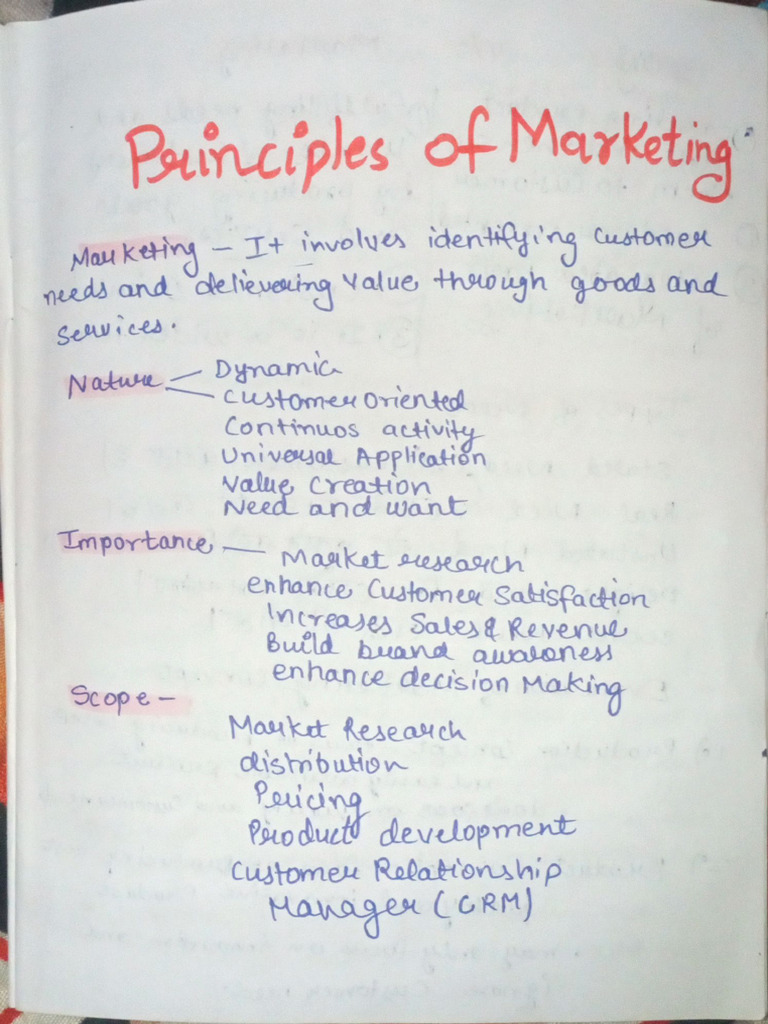 Principles of Marketing
Marketing - It involves identifying customer
needs and delievering value through goods and
services.
Nature - Dynamic
Customer oriented
Continuos activity
Universal Application
Value Creation
Need and want
Importance - Market research
enhance Customer Satisfaction
Increases Sales & Revenue
Build brand awareness
enhance decision Making
Scope -
Market Research
distribution
Pricing
Product development
Customer Relationship
Manager (CRM)